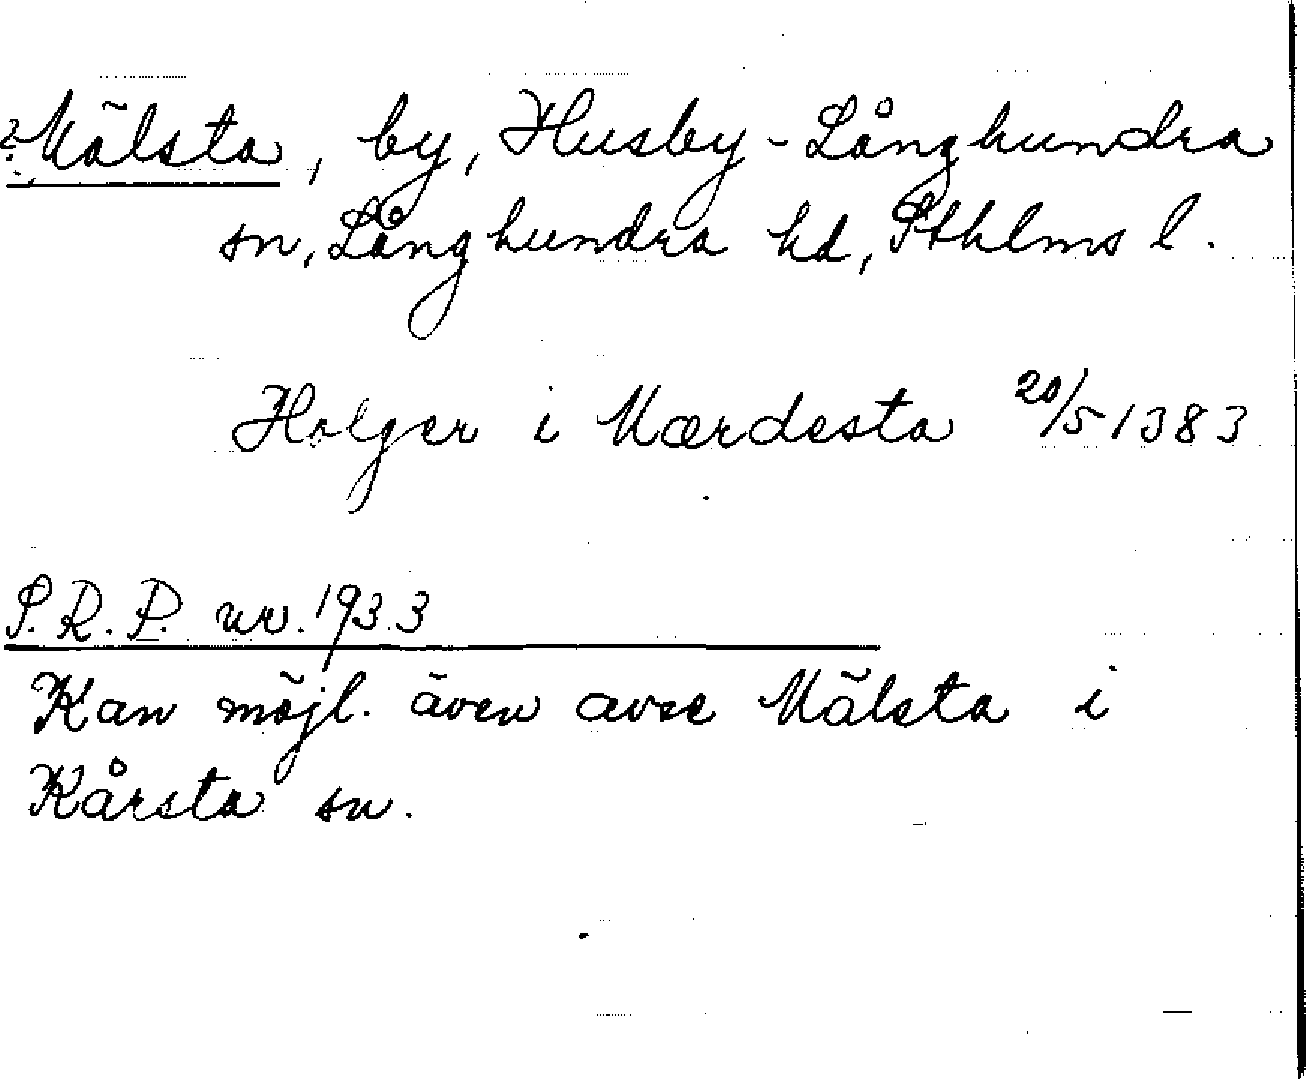 ? Mälsta, by, Husby-Långhundra
sn, Långhundra hd, Sthlms l.
Holger i Mærdesta 20/5 1383
S.R.P. nr. 1933
Kan möjl. även avse Mälsta i
Kårsta sn.